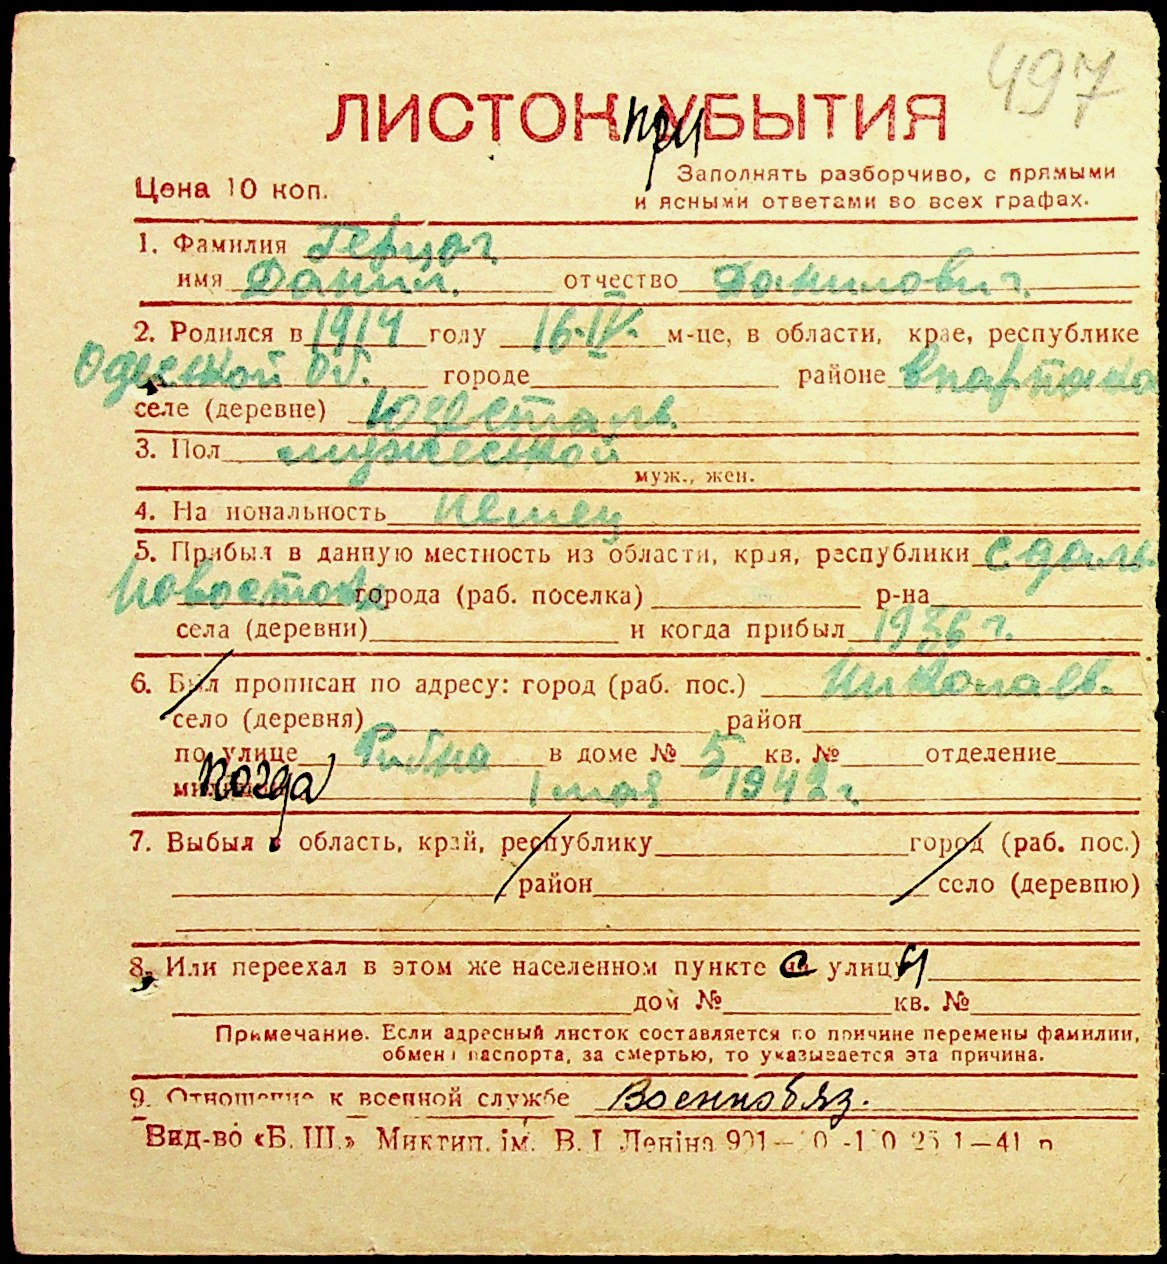 497
ЛИСТОК при УБЫТИЯ
Цена 10 коп.
Заполнять разборчиво, с прямыми
и ясными ответами во всех графах.
1. Фамилия Герцог.
имя Данил. отчество Данилович.
2. Родился в 1914 году 16.IV. м-це, в области, крае, республике
Одесской об. городе районе
селе (деревне)
3. Пол мужеской
муж., жен.
4. Национальность немец
5. Прибыл в данную местность из области, края, республики с даль
новостока города (раб. поселка) р-на
села (деревни) и когда прибыл 1936 г.
6. Был прописан по адресу: город (раб. пос.) Николаев.
село (деревня) район
по улице Рибна в доме № 5 кв. № отделение
когда 1 мая 1942 г.
7. Выбыл в область, край, республику город (раб. пос.)
район село (деревню)
8. Или переехал в этом же населенном пункте с улицы
дом № кв. №
Примечание. Если адресный листок составляется по причине перемены фамилии,
обмена паспорта, за смертью, то указывается эта причина.
9. Отношение к военной службе Военнобяз.
Вид-во «Б. Ш.» Миктип. ім. В. І Леніна